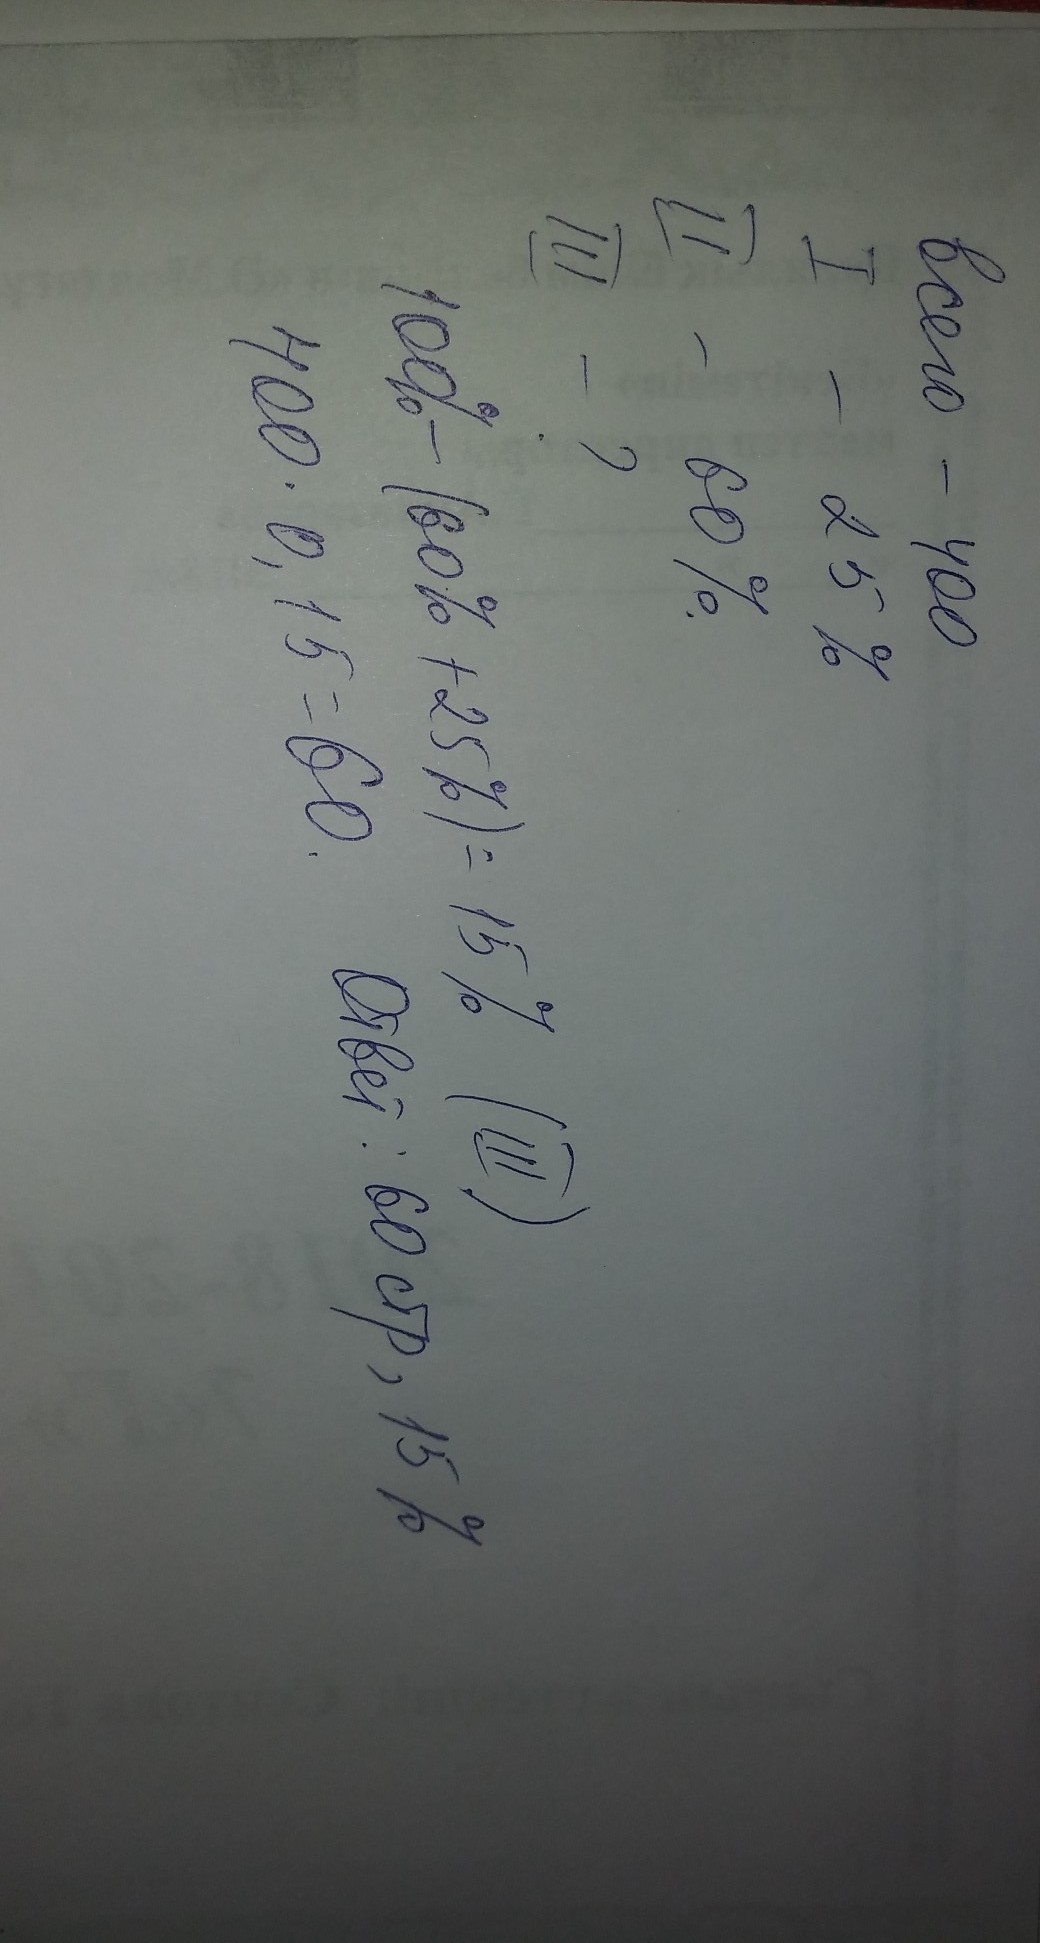 всего - 400
I - 25%
II - 60%.
III - ?
100% - (60% + 25%) = 15% (III)
400 · 0,15 = 60. Ответ: 60 стр, 15%